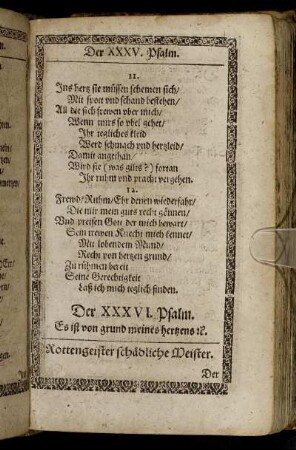 Der XXXV. Psalm.
11.
Ins hertz sie müßen schemen sich/
Mit spott vnd schand bestehen/
All die sich frewen vber mich/
Wenn mirs so vbel gehet/
Ihr tegliches kleid
Werd schmach vnd hertzleid/
Damit angethan/
Wird sie (was gilts?) fortan
Ihr ruhm vnd pracht vergehen.
12.
Frewd/Ruhm/Ehr denen wiederfahr/
Die mir mein guts recht gönnen/
Vnd preisen Gott der mich bewart/
Sein trewen Knecht mich kennet/
Mit lobendem Mund/
Recht von hertzen grund/
Zu rühmen bereit
Seine Gerechtigkeit
Laß ich mich teglich finden.
Der XXXVI. Psalm.
Es ist von grund meines hertzens ꝛc.
Rottengeister schädliche Meister.
Der